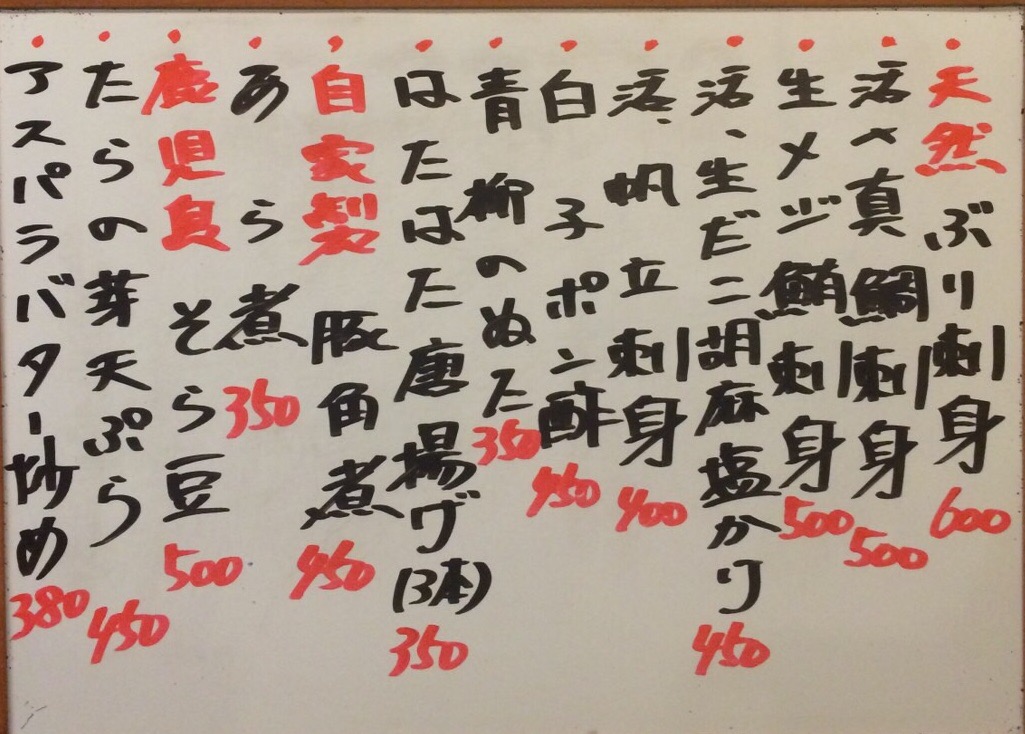 ・天然ぶり刺身600
・活〆真鯛刺身500
・生メジ鮪刺身500
・活、生だこ胡麻塩かり450
・活、帆立刺身400
・白子ポン酢450
・青柳のぬた350
・はたはた唐揚げ(3本)350
・自家製豚角煮450
・あら煮350
・鹿児島そら豆500
・たらの芽天ぷら450
・アスパラバター炒め380